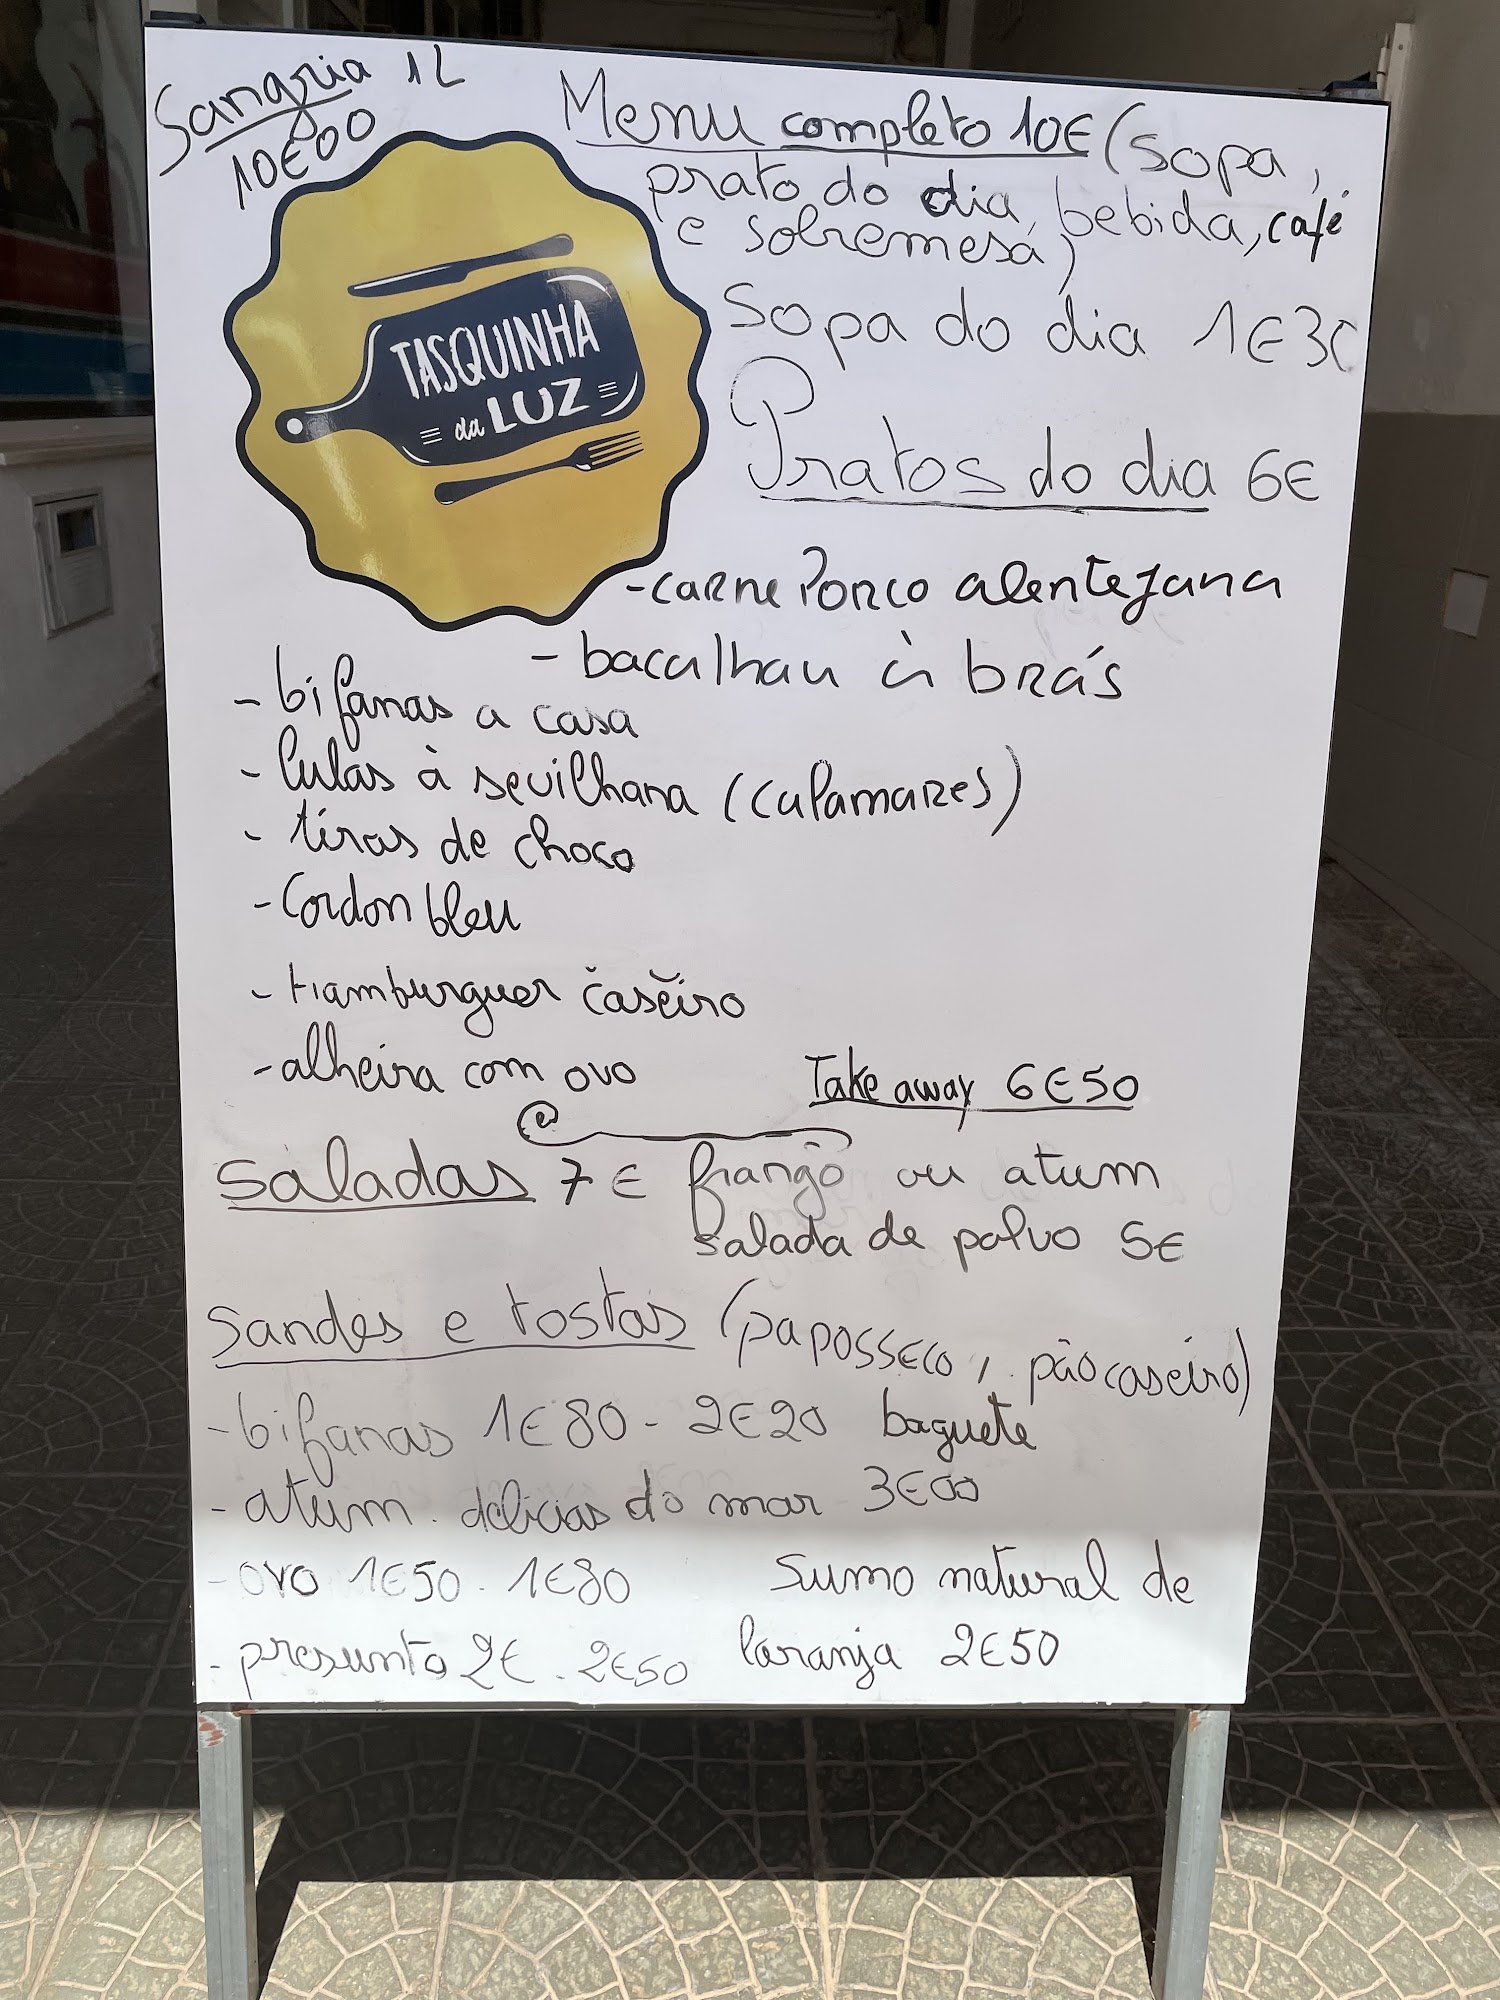 Sangria 1L
10€00
Menu completo 10€ (sopa,
prato do dia, bebida, café
e sobremesa)
Sopa do dia 1€30
TASQUINHA
da LUZ
Pratos do dia 6€
-carne Porco alentejana
- bacalhau à brás
- bifanas a casa
- lulas à sevilhana (calamares)
- tiras de choco
- Cordon bleu
- Hamburguer caseiro
- alheira com ovo
Take away 6€50
saladas 7€ frango ou atum
salada de polvo 5€
Sandes e tostas (paposseco, pão caseiro)
- bifanas 1€80 - 2€20 baguete
- atum. delicias do mar 3€00
- ovo 1€50 - 1€80
- presunto 2€ - 2€50
Sumo natural de
laranja 2€50